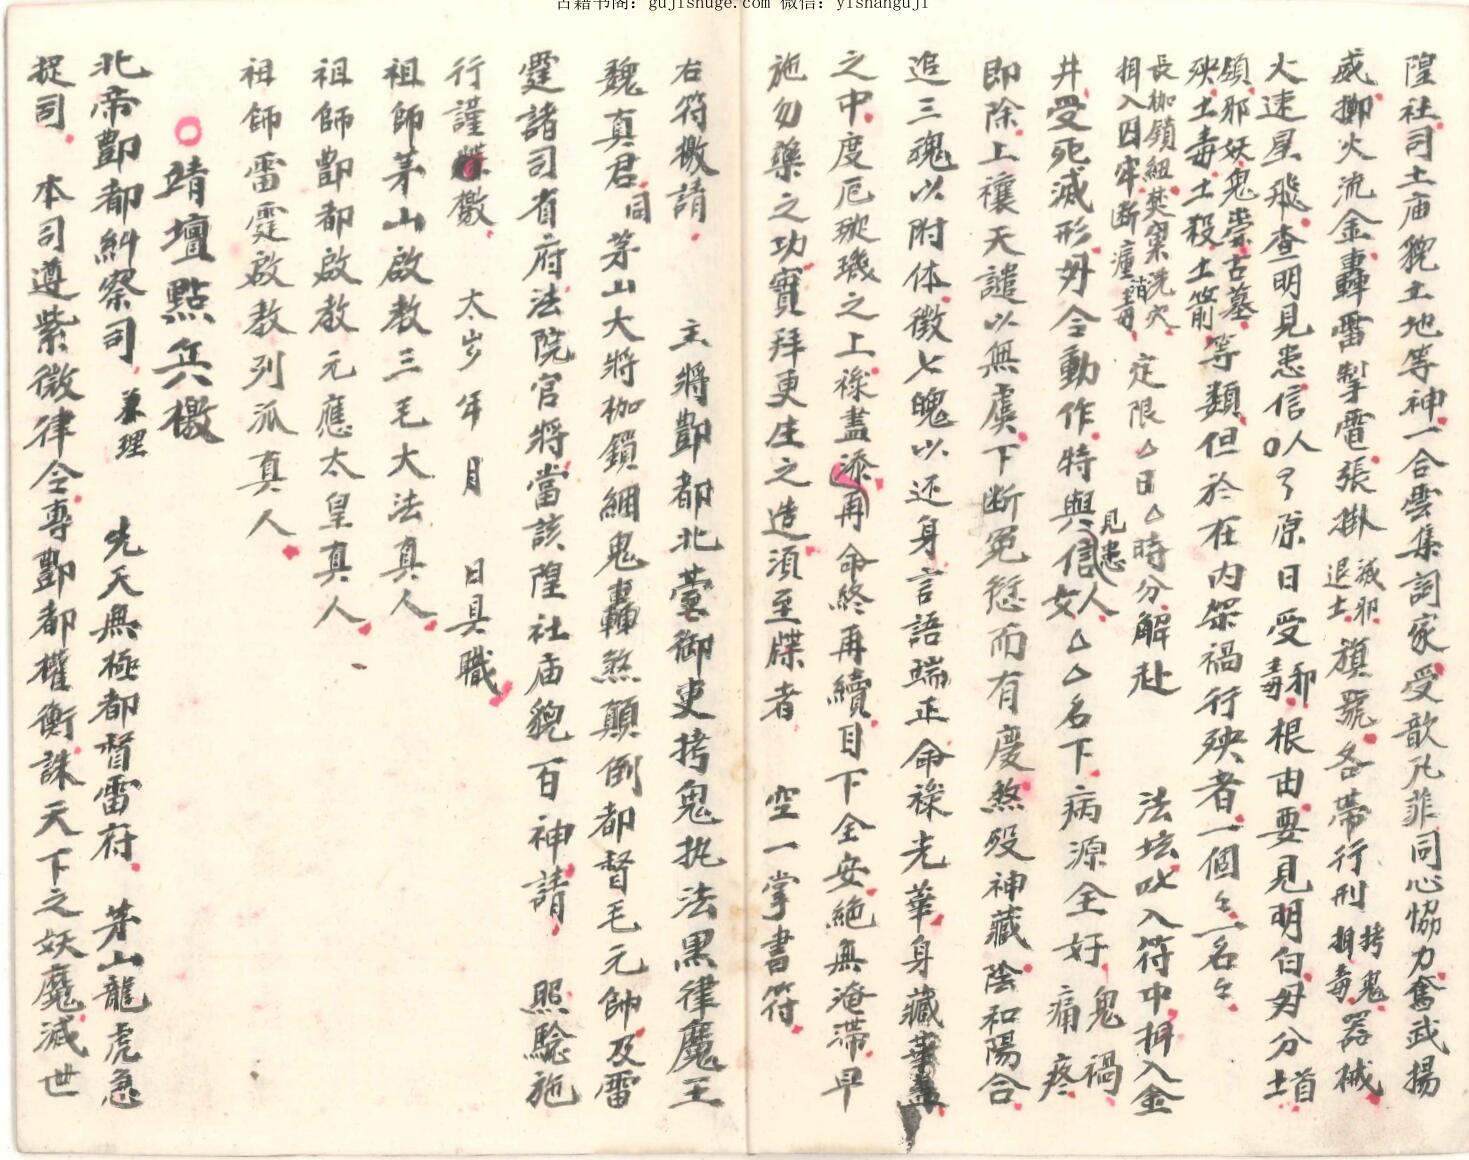 古籍书阁：gujishuge.com 微信：yishanguji
隍社司土庙貌土地等神一合雲集詞家受歆凡菲同心恊力奮武揚
威擲火流金轟雷掣電張掛滅邪退土旗號各帶行刑拷鬼捐毒器械
火速星飛查明見患信人〇了原日受邪毒根由要見明白毋分土首
頭邪妖鬼祟古墓殃土毒土殺土箭等類但於在内架禍行殃者一個々一名々
長枷鎖紐焚窠洗穴捐入囚牢断瘟消毒定限△日△時分解赴 法坛叱入符中捐入金
井受死滅形毋令動作特與見患信人女△△名下病源全好鬼禍痛疼
即除上禳天譴以無虞下断冤愆而有慶煞殁神藏陰和陽合
追三魂以附体徵七魄以还身言語端正命祿光華身藏華蓋
之中度厄璇璣之上祿盡添再命終再續目下全安絶無淹滯早
施勿藥之功實拜更生之造須至牒者 空一掌書符
右符檄請 主將酆都北臺御吏拷鬼执法黑律魔王
魏真君同茅山大將枷鎖綑鬼轟煞顛倒都督毛元帥及雷
霆諸司省府法院官將當該隍社庙貌百神請 照驗施
行謹檄 太岁年 月 日具職
祖師茅山啟教三毛大法真人
祖師酆都啟教元應太皇真人
祖師雷霆啟教列派真人
〇靖壇點兵檄
北帝酆都糾察司兼理 先天無極都督雷府 茅山龍虎急
捉司 本司遵紫微律令專酆都權衡誅天下之妖魔滅世